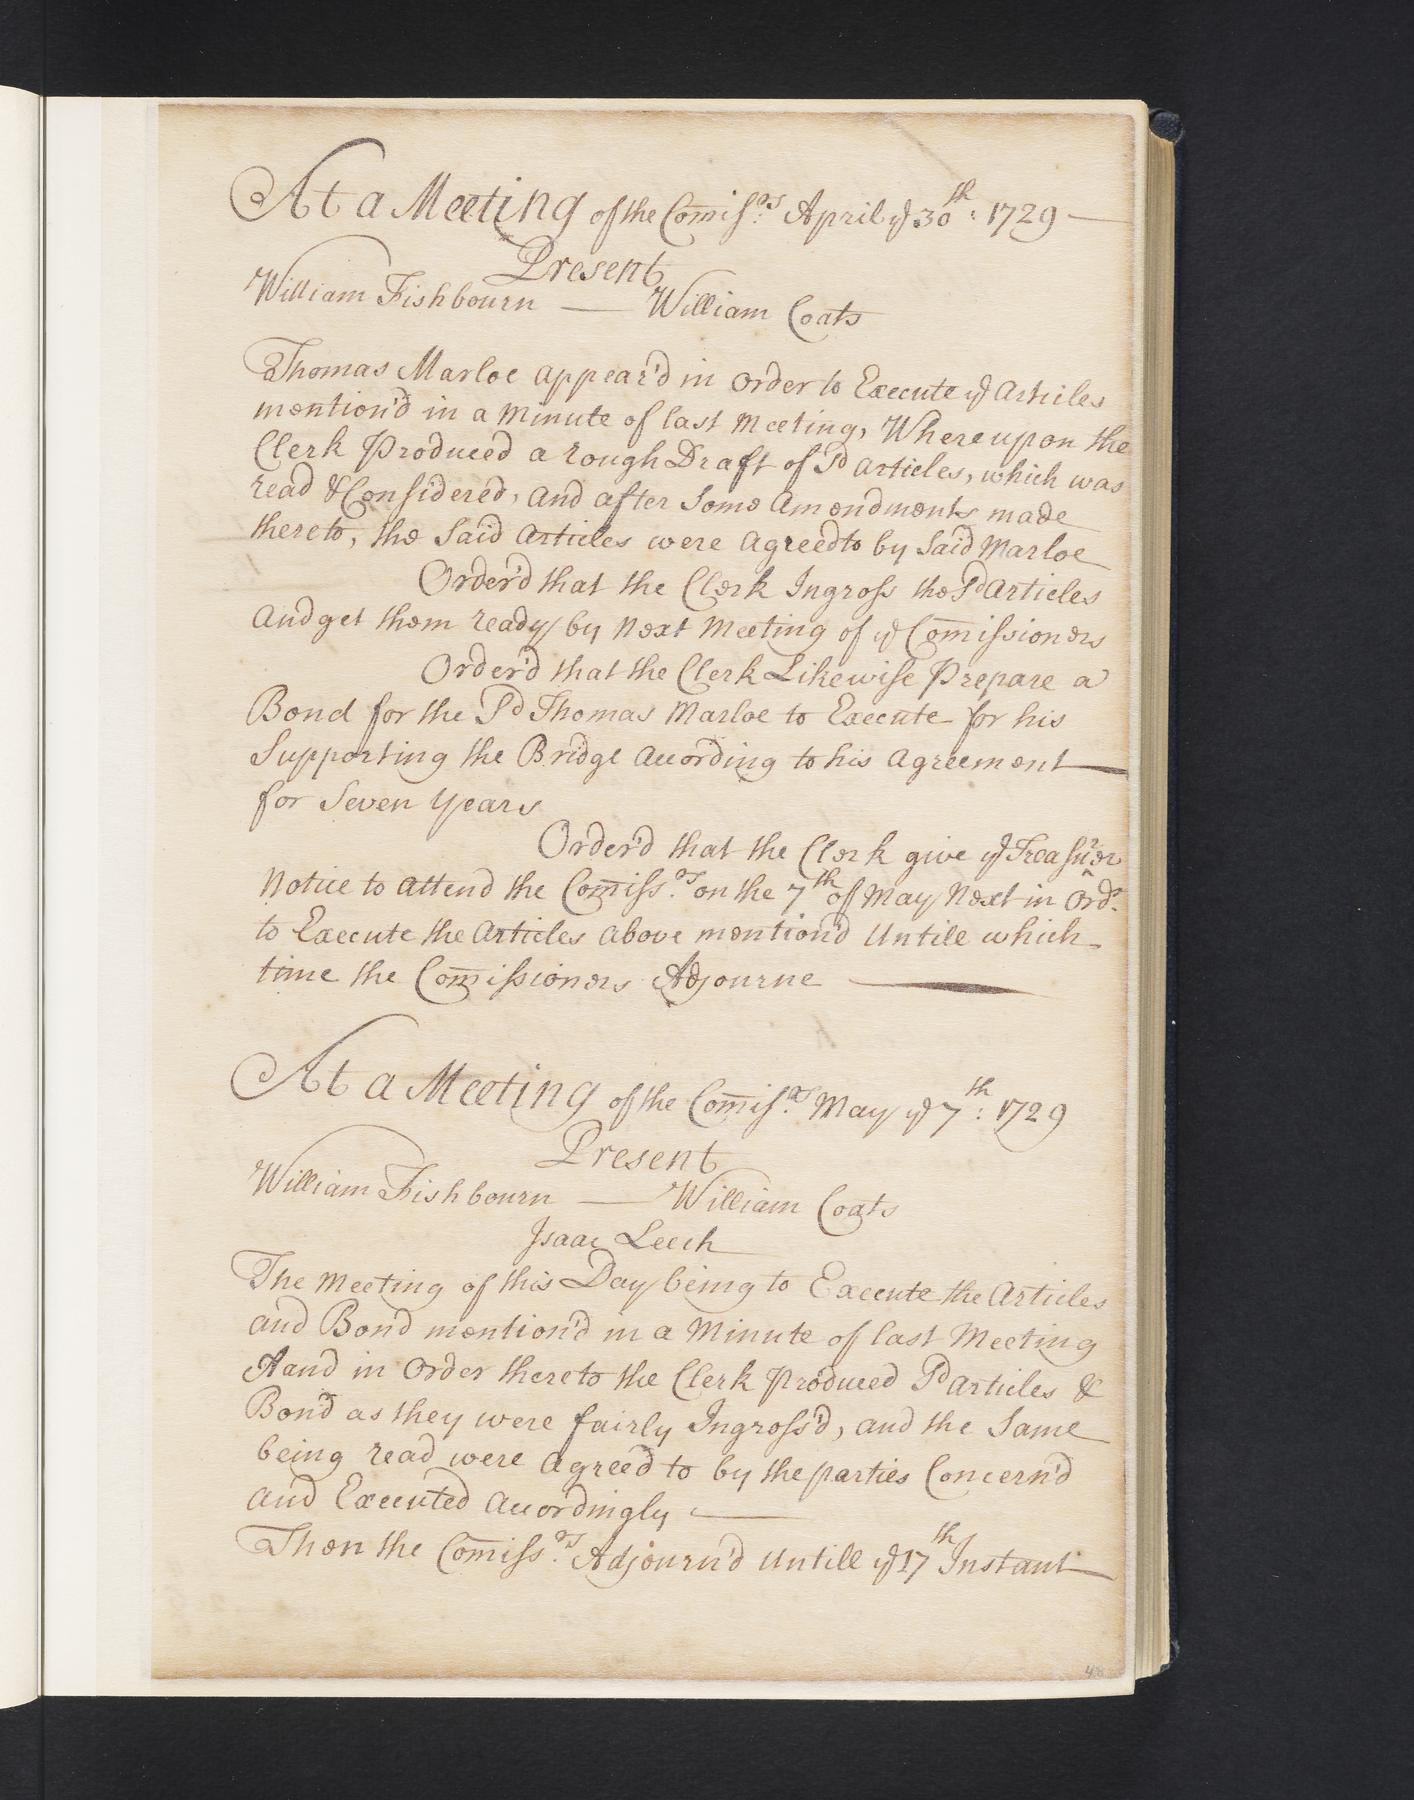 At a Meeting of the Comiss.rs April ye 30th: 1729
Present
William Fishbourn — William Coats
Thomas Marloe appear'd in order to Execute ye Articles
mention'd in a Minute of last Meeting, Whereupon the
Clerk Produced a rough Draft of Sd Articles, which was
read & Considered, and after some Amendments made
thereto, the Said Articles were agreed to by Said Marloe
Order'd that the Clerk Ingross the Sd Articles
and get them ready by Next Meeting of ye Comissioners
Order'd that the Clerk Likewise Prepare a
Bond for the Sd Thomas Marloe to Execute for his
Supporting the Bridge according to his Agreement
for Seven Years
Order'd that the Clerk give ye Treasurer
Notice to attend the Comiss.rs on the 7th of May Next in Ordr.
to Execute the Articles above mention'd Untill which
time the Comissioners Adjourne
At a Meeting of the Comiss.rs May ye 7th: 1729
Present
William Fishbourn — William Coats
Isaac Leech
The Meeting of this Day being to Execute the Articles
and Bond mention'd in a Minute of last Meeting
Aand in Order thereto the Clerk Produced Sd Articles &
Bond as they were fairly Ingross'd, and the Same
being read were agreed to by the parties Concern'd
and Executed accordingly
Then the Comiss.rs Adjourn'd Untill ye 17th Instant
48